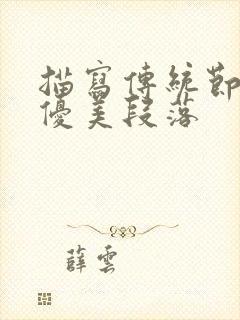 描寫傳統節
優美段落
薛雲